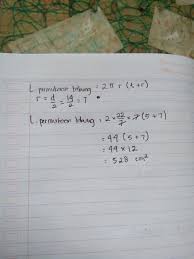 L. permukaan tabung = 2 π r (t + r)
r = d/2 = 14/2 = 7
L. permukaan tabung = 2 × 22/7 × 7 (5 + 7)
= 44 (5 + 7)
= 44 × 12
= 528 cm²